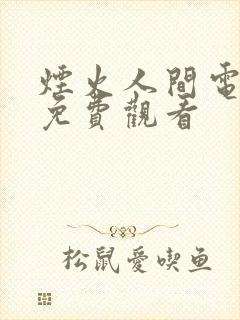 煙火人間電
免費觀看
松鼠愛喫鱼